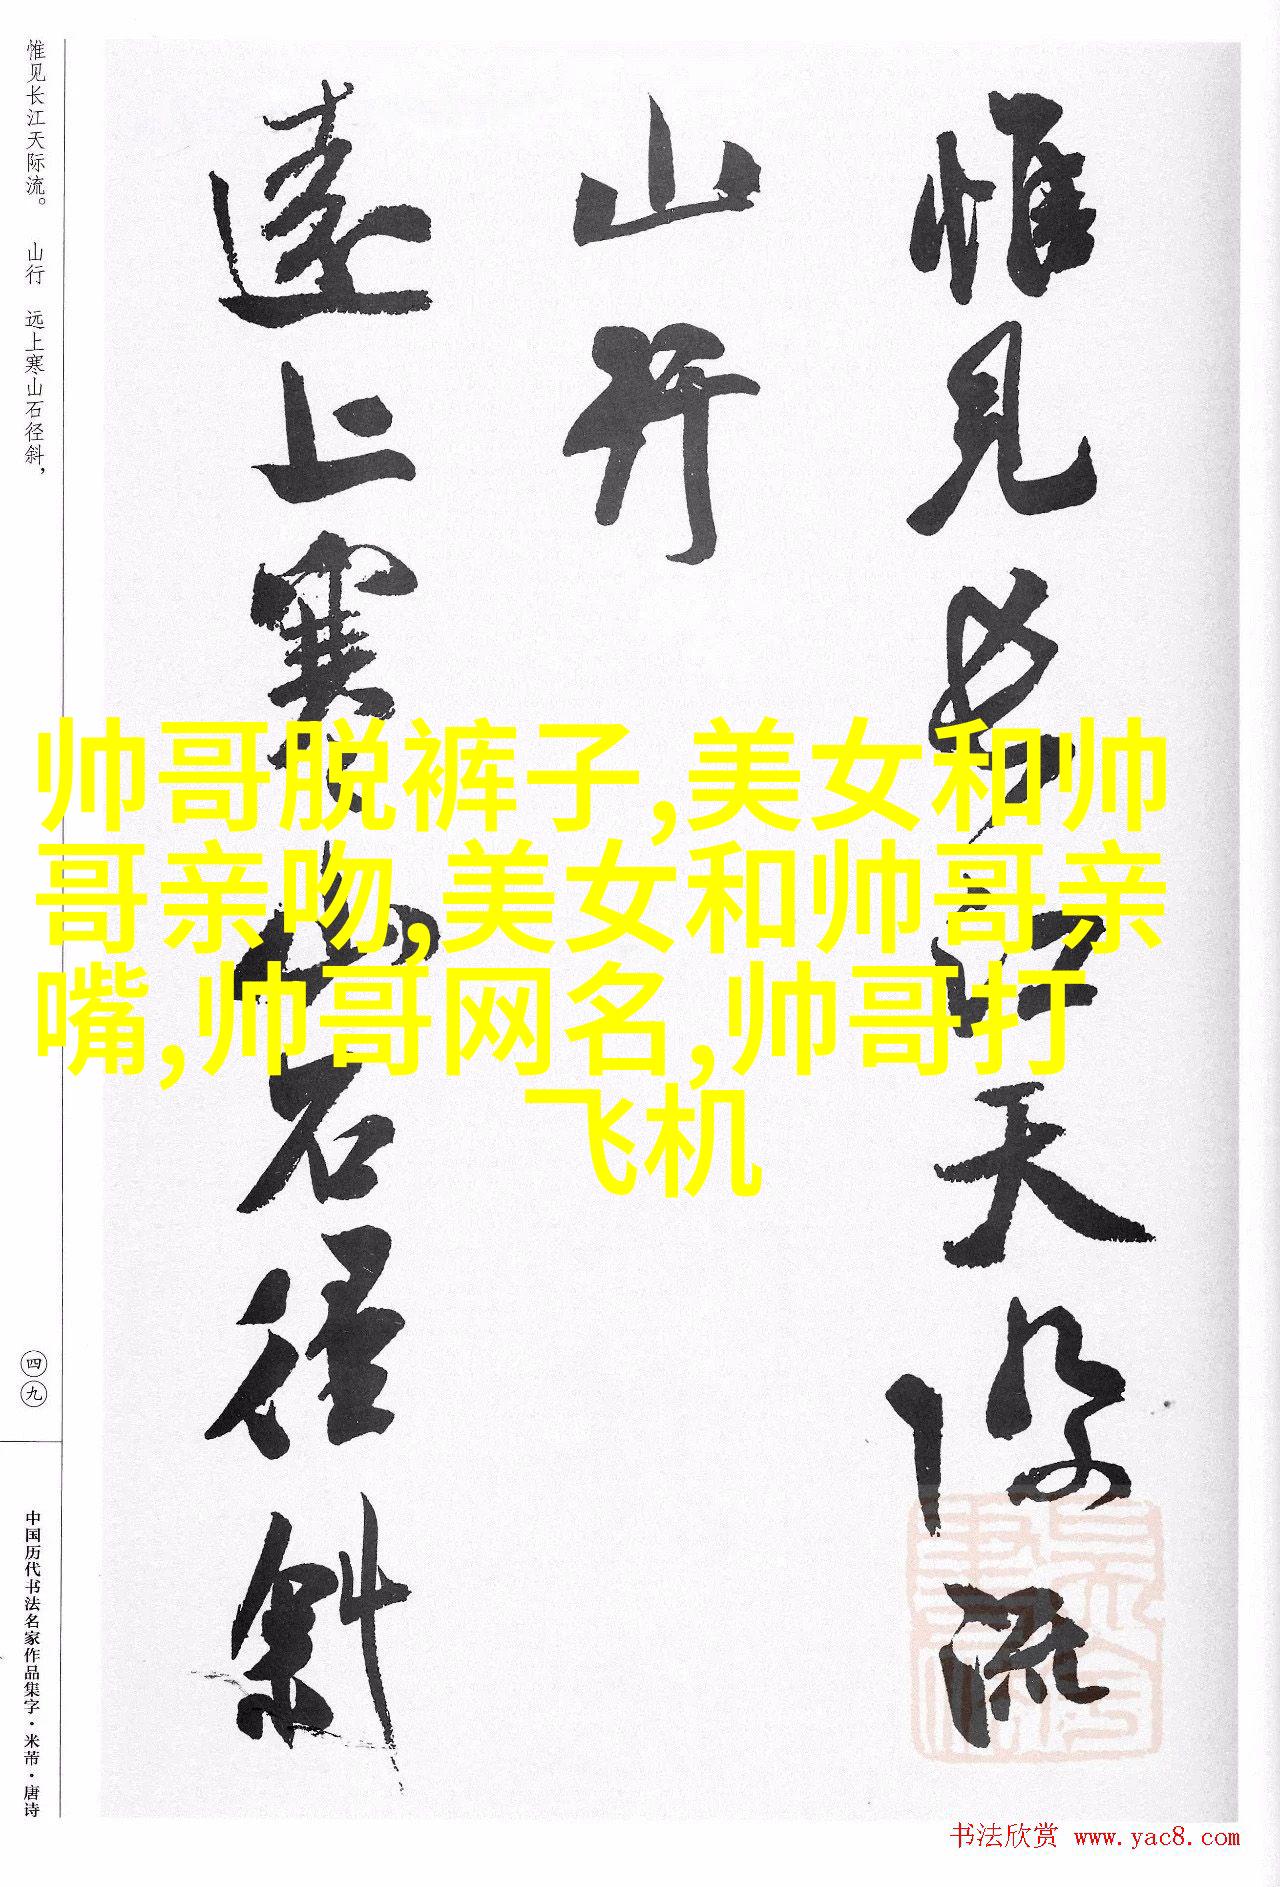 惟见长江天际流。 山行 远上寒山石径斜，
四九
中国历代书法名家作品集字·米芾·唐诗
惟見長江天際流
山行
遠上寒山石徑斜
帅哥脱裤子,美女和帅
哥亲吻,美女和帅哥亲
嘴,帅哥网名,帅哥打
飞机
书法欣赏 www.yac8.com